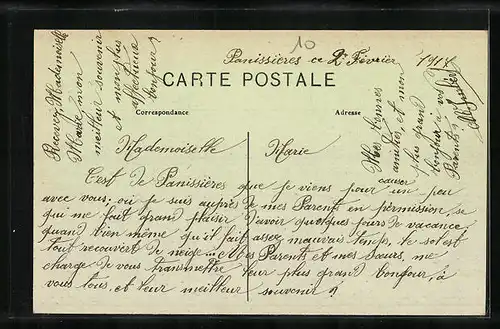 10
Panissières ce 2 Février 1917
CARTE POSTALE
Correspondance
Adresse
Mademoiselle Marie
C'est de Panissières que je viens pour causer un peu
avec vous, où je suis auprès de mes Parents en permission, ce
qui me fait grand plaisir d'avoir quelques jours de vacance,
quand bien même qu'il fait assez mauvais temps, le sol est
tout recouvert de neige... Mes Parents et mes Sœurs, me
charge de vous transmettre leur plus grand bonjour, à
vous tous, et leur meilleur souvenir
Recevez, Mademoiselle
Marie mon
meilleur souvenir
et mon plus
affectueux
bonjour!
Mes bonnes
amitiés, et mon
plus grand
bonjour à vos
Parents